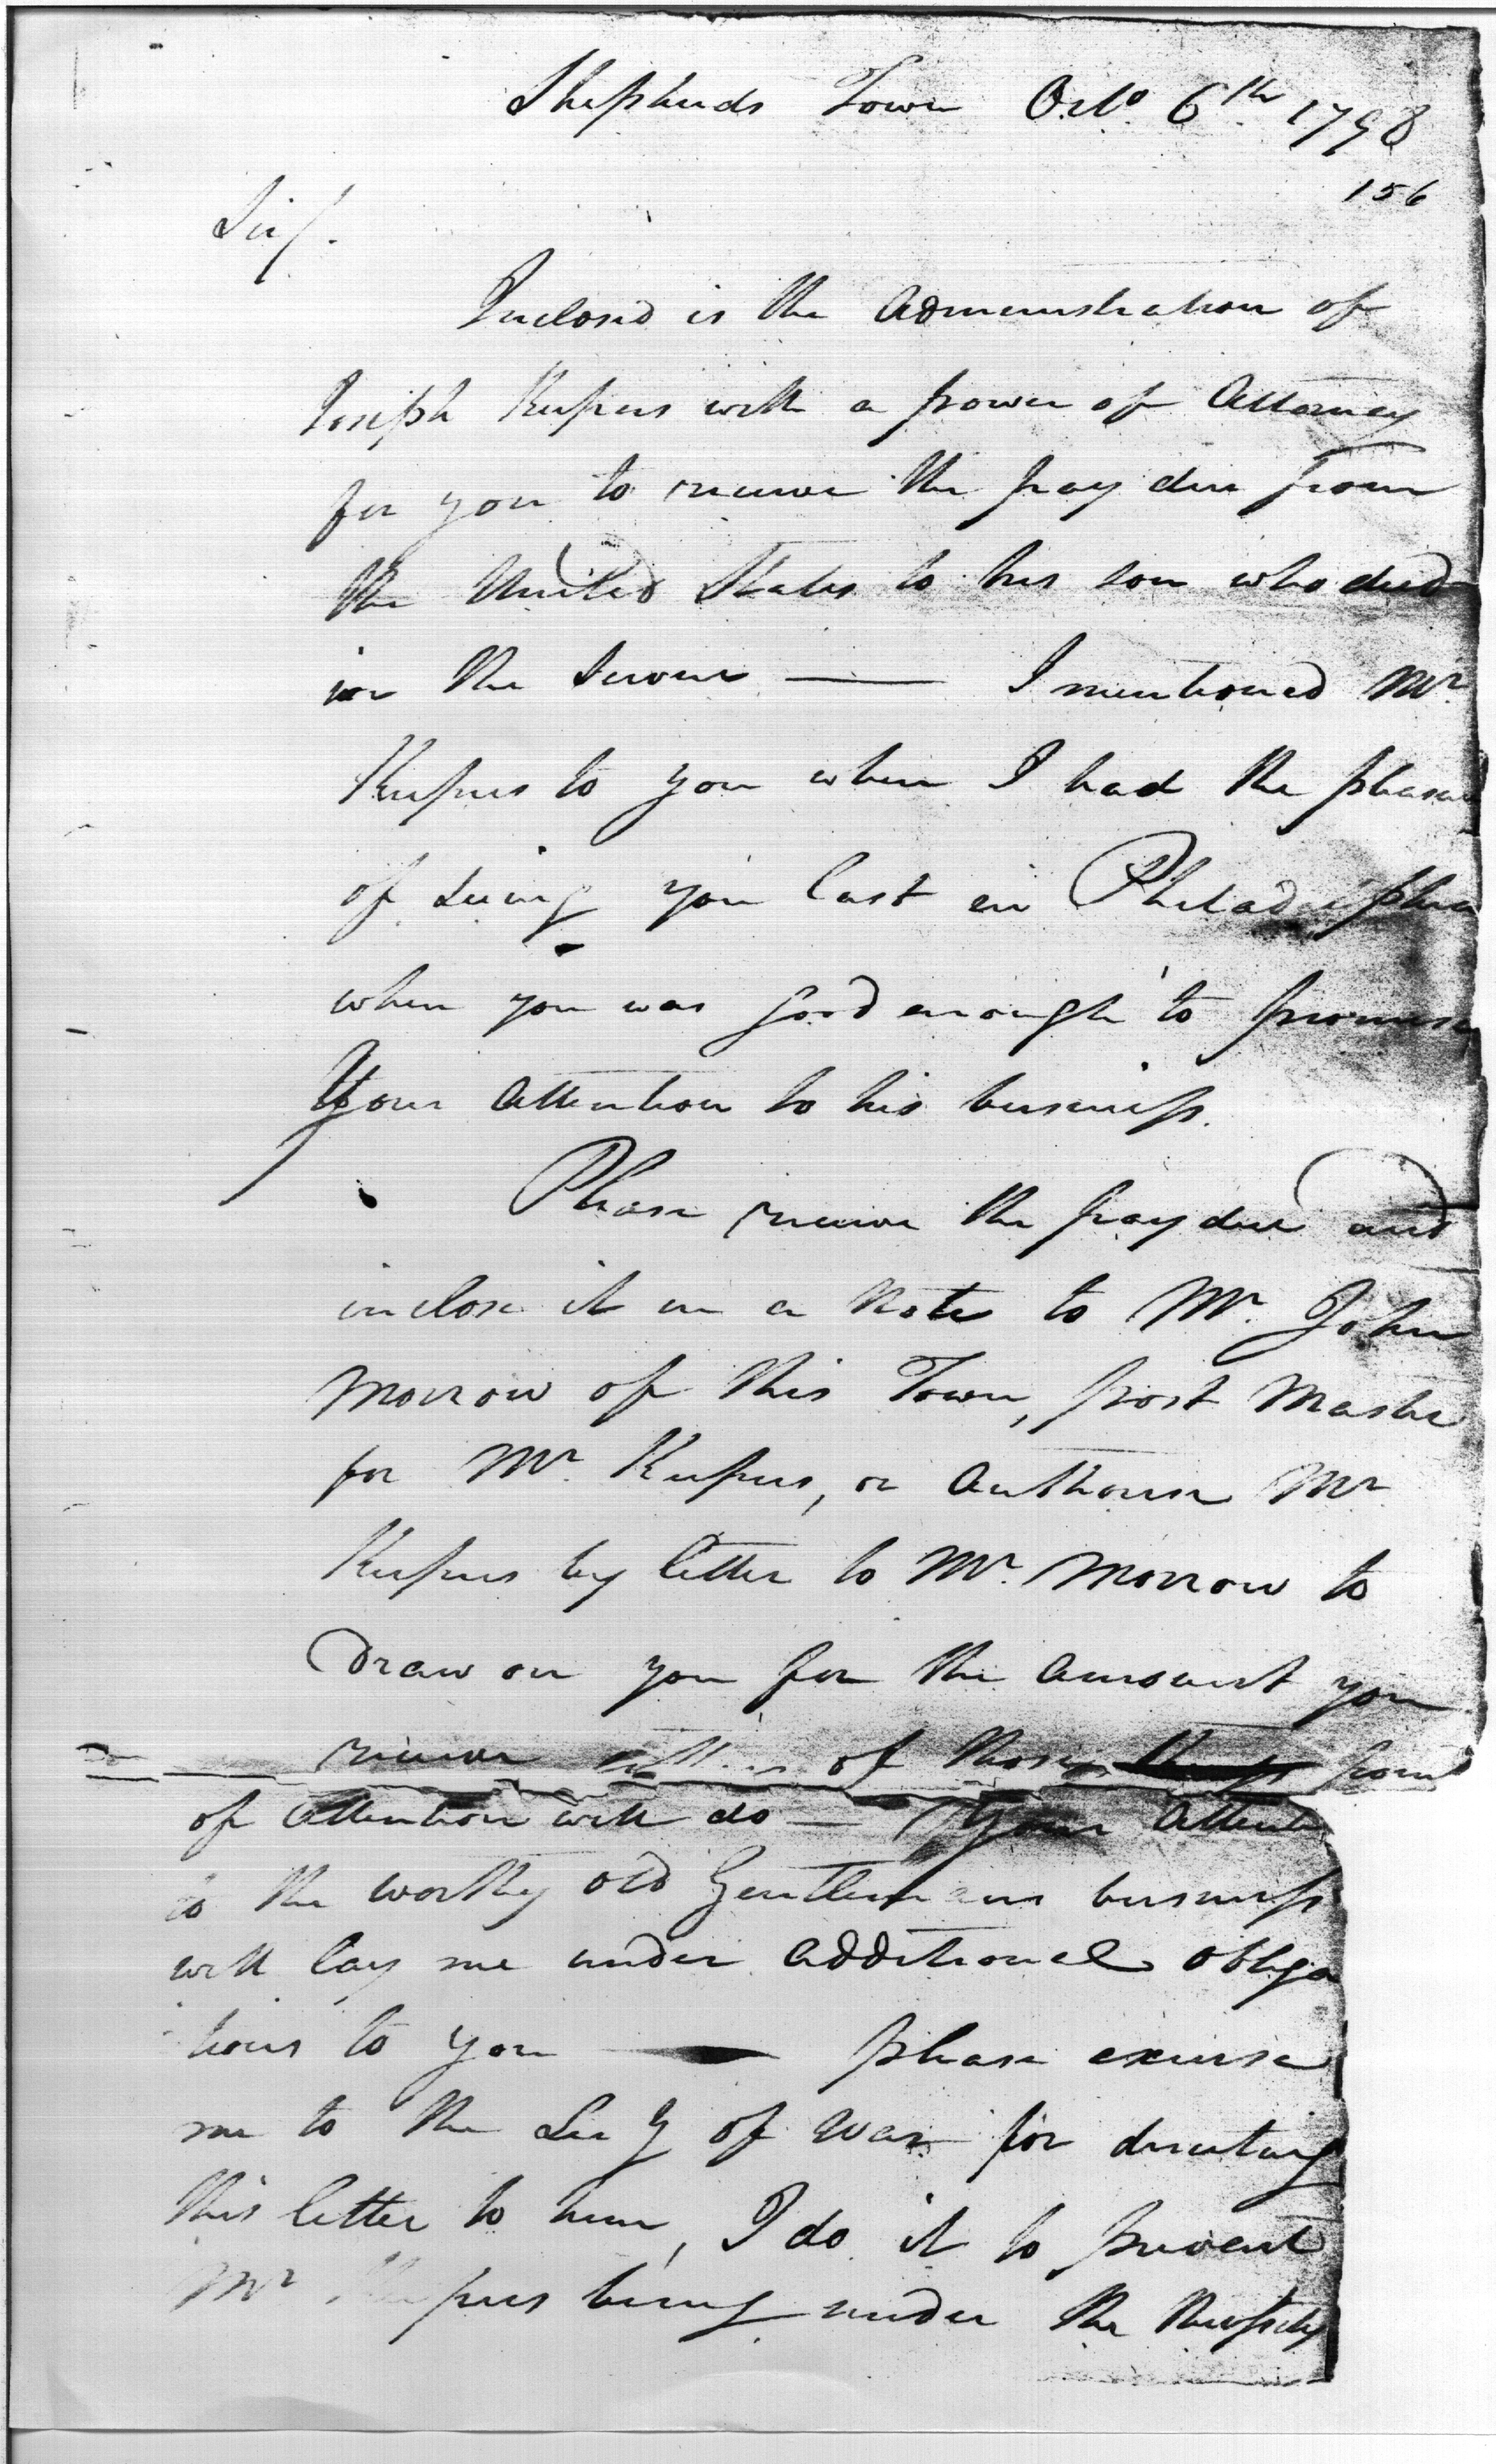 Shepherds Town Octo. 6th 1798
156
Sir/.
Inclosed is the Administration of
Joseph Kufus with a power of Attorney
for you to receive the pay due from
the United States to his son who died
in the Service — I mentioned Mr
Kufus to you when I had the pleasu
of Seeing you last in Philadelphia
when you was good enough to promise
Your attention to his business.
Please receive the pay due and
inclose it in a Note to Mr. John
Morrow of this Town, post Master
for Mr. Kufus, or Authorise Mr
Kufus by letter to Mr. Morrow to
Draw on you for the amount you
receive either of those from
of attention will do — Your attenti
to the worthy old Gentlemans business
will lay me under additional obliga
tions to you — please excuse
me to the Secy of War for directing
this letter to him, I do it to prevent
Mr being under the Necessity